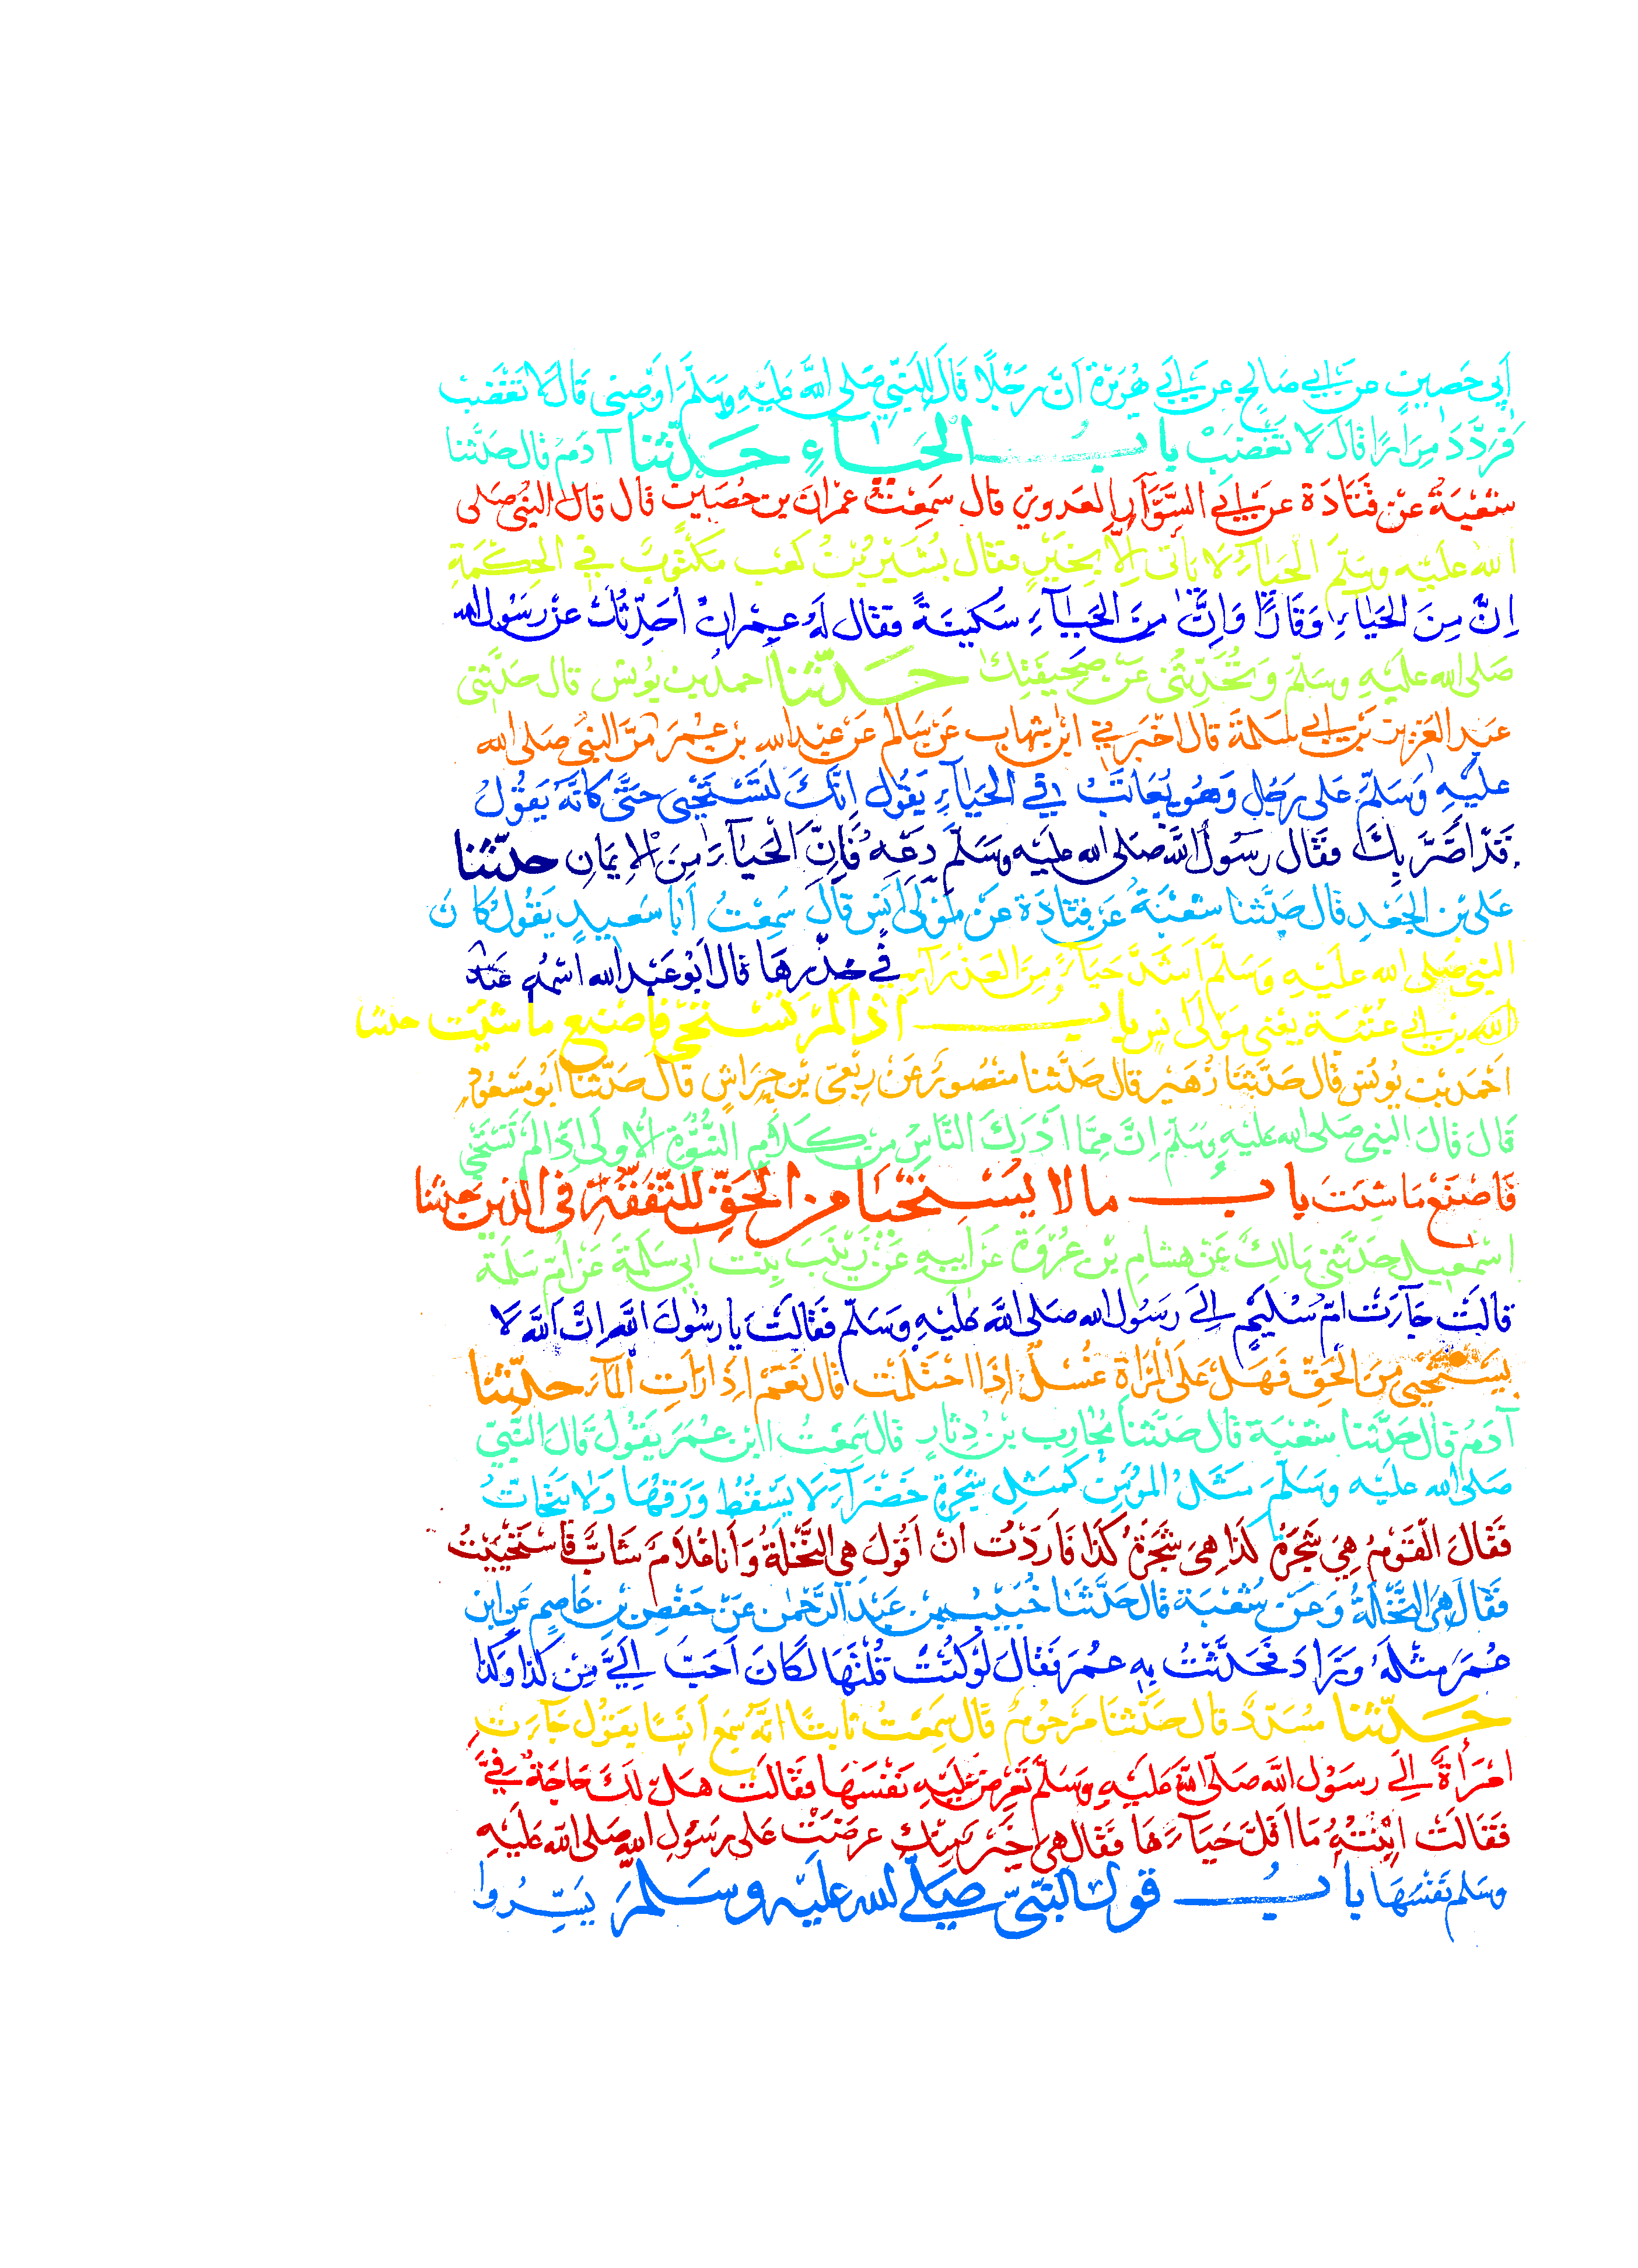 أَبِي حَصِينٍ عن أبي صَالِحٍ عن أبي هُرَيْرَةَ أَنَّ رَجُلًا قَالَ لِلنَّبِيِّ صَلى اللَّهُ عَلَيْهِ وَسَلَّمَ اَوْصِنِى قَالَ لَا تَغْضَبْ
فَرَدَّدَ مِرَارًا قَالَ لَا تَغْضَبْ باب الحَيَاءِ حَدَّثَنَا آدَمُ قال حَدَّثنا
شعْبَةُ عَنْ قَتَادَةَ عن أَبِي السَّوَّارِ العَدويّ قال سَمِعْتُ عِمْرَانَ بن حُصَيْنٍ قَال قال النبيُّ صَلى
الله عَلَيْه وسَلَّمَ الحَيَاءُ لا يَأتى إِلَّا بِخَيْرٍ فقال بُشَيْرُ بْنُ كَعْب مَكْتُوبٌ فِي الحِكْمَةِ
اِنَّ مِنَ الحَيَاءِ وَقَارًا وَاِنَّ مِنَ الحَيَاءِ سَكِينَةً فقال لَهُ عِمْرانُ أُحَدِّثُكَ عَنْ رسَوُل الله
صَلى الله عليْهِ وسَلّمَ وَتُحَدِّثُنِى عَنْ صَحِيفَتِكَ حَدّثنا احمد بن يُونس قال حَدَّثنى
عَبْد العَزِيز بْن أَبِي سَلَمَةَ قال اَخْبَرَنِي ابْن شِهَاب عَنْ سَالم عَنْ عبْد الله بْن عُمَرَ مَرَّ النبيُّ صَلى الله
عليْهِ وَسَلّمَ على رَجُلٍ وَهُوَ يُعَاتَبُ في الحَيَاءِ يَقُول اِنَّكَ لَتَسْتَحْيِى حَتَّى كَانَّهُ يَقُولُ
قَدْ اَضَرَّ بِكَ فقَال رسُولُ اللَّه صَلى الله عليْه وَسَلَّمَ دَعْهُ فَإِنَّ الحَيَاءَ مِنَ الإِيمَانِ حدّثنا
عَلى بْن الجَعْدِ قَال حَدَّثنا شعْبَةُ عَنْ قتَادَة عَنْ مَوْلَى اَنَس قَالَ سَمِعْتُ أَبَا سَعيدٍ يَقُولُ كَانَ
النبي صَلى الله عليْهِ وَسَلَّمَ اَشَدَّ حَيَاءً مِنَ العَذْرَاءِ فِي خِدْرِهَا قال اَبُو عَبْد الله اسْمُهُ عَبْد
الله بن أبي عُتْبَة يعْنى مَوْلَى اَنَسٍ باب اذَا لَمْ تَسْتَحْيِ فَاصْنِع ما شئت حدثنا
اَحْمَد بن يُونُس قَال حَدَّثَنَا زُهَيْر قال حَدَّثنا منصُور عَنْ رِبْعِىّ بْن حِرَاشٍ قال حَدّثنا اَبُو مَسْعُودٍ
قَالَ قَالَ النبي صَلى الله عَليْهِ وسَلَّمَ اِنَّ مِمَّا اَدْرَكَ النَّاسُ مِن كَلَامِ النُّبُوَّةِ الاُولَى اِذَا لَمْ تَسْتَحْيِ
فَاصْنَعْ مَا شِئتَ باب ما لا يُسْتَحْيَا من الحَقِّ لِلتَّفَقُّهِ فى الدين حدثنا
اسْمعيل حَدَّثَنِى مَالِكٌ عَنْ هشام بْن عُرْوَةَ عَنْ اَبِيهِ عَنْ زَيْنَبَ بِنْت ابي سَلَمَةَ عَنْ امّ سَلَمَةَ
قالَتْ جَاءَتْ امّ سُلَيْمٍ اِلَى رَسُولِ الله صَلى اللَّهُ عَليْهِ وَسَلّمَ فَقالَتْ يا رسُولَ اللَّهِ اِنَّ اَللَّهَ لَا
يَسْتَحْيِى مِنَ الحَقِّ فَهَلْ عَلَى المَرْاَةِ غُسْلٌ اِذَا احْتَلَمَت قال نَعَمْ اِذَا رَاَتِ المآءَ حدّثنا
آدَمُ قَال حَدَّثَنا شعْبَة قَال حَدَّثنا مُحَارِب بْنُ دِثارٍ قال سَمِعْتُ ابن عُمَرَ يَقُولُ قَالَ النَّبِيّ
صَلى الله عليْه وسَلّمَ مَثَلُ المؤمِنِ كَمَثَلِ شَجَرَةٍ خَضْرَآءَ لَا يَسْقُطُ وَرَقُهَا وَلَا يَتَحَاتُّ
فَقَالَ القَوْمُ هِيَ شَجَرَةُ كَذَا هِىَ شَجَرَةُ كَذَا فَاَرَدْتُ اَنْ اَقُولَ هِى النَّخْلَةُ وَأَنا غُلَامٌ شَابٌّ فَاسْتَحْيَيْتُ
فَقَالَ هِىَ النَّخْلَةُ وَعَنْ شُعْبَة قَال حَدَّثَنا خُبَيْب بن عَبْد الرَّحْمٰن عَنْ حَفْصِ بْنِ عَاصِمٍ عَنِ ابْن
عُمَرَ مثْلَهُ وَزَادَ فَحَدَّثْتُ بِهِ عُمَرَ فَقَالَ لَوْ كُنْتَ قُلْتَهَا لَكَانَ اَحَبَّ اِلَيَّ مِنْ كَذَا وَكَذا
حَدّثنا مُسَدَّدٌ قال حَدَّثَنَا مَرْحُومٌ قَال سَمِعْتُ ثَابتًا اَنَّهُ سَمِعَ اَنسًا يقُول جَاءَتِ
امْرَأَةٌ اِلَى رسُول اللَّه صَلّى اللَّه عَليْهِ وَسَلّمَ تَعْرِض عَليْهِ نَفْسَهَا فقَالَت هَلْ لَكَ حَاجَةٌ فِيَّ
فَقَالَت ابْنَتُهُ مَا اَقَلَّ حَيَاءَهَا فَقَال هِىَ خَيْرٌ مِنْكِ عرضَتْ عَلى رسُولِ اللهِ صَلى اللَّه عَلَيْهِ
وسَلم نَفْسَهَا بابُ قول النبيّ صَلى الله عليْه وسَلمَ يَسِّرُوا